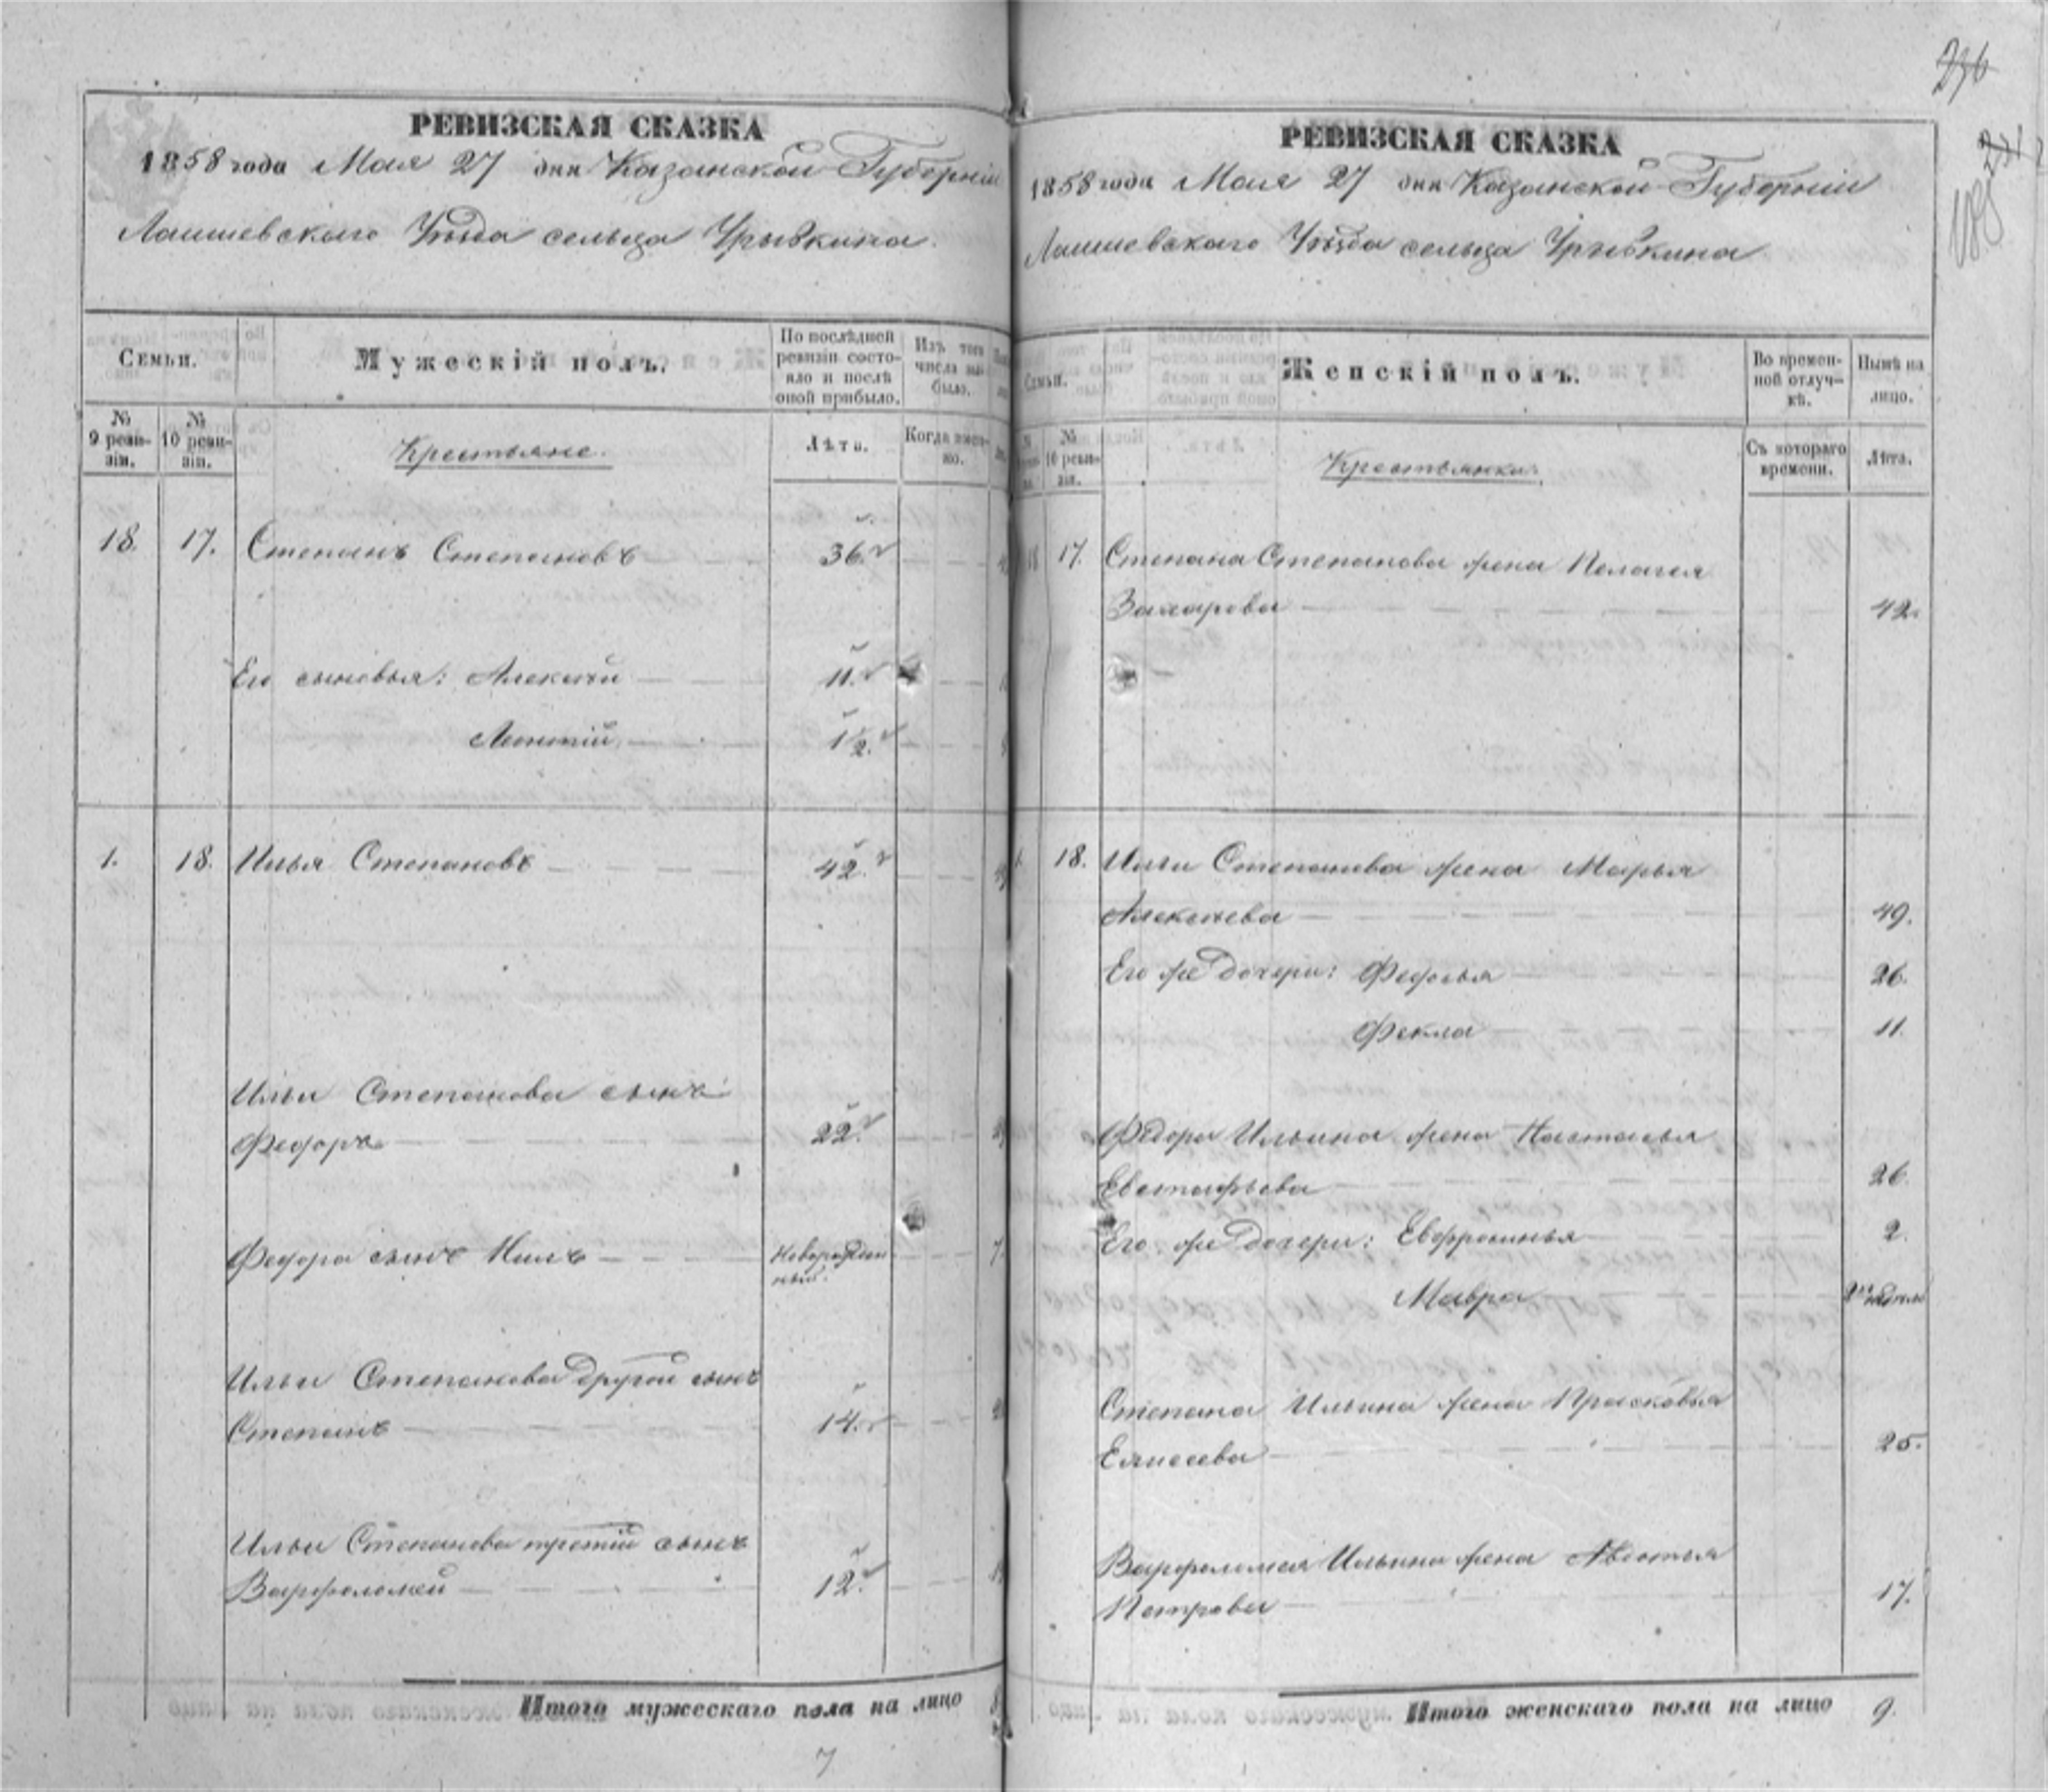 236
РЕВИЗСКАЯ СКАЗКА
1858 года Мая 27 дня Казанской Губерніи
Лаишевскаго Уѣзда сельца Урывкина
Семьи.
Мужескій полъ.
По послѣдней ревизіи состояло и послѣ оной прибыло.
Изъ того числа выбыло.
№ 9 ревизіи.
№ 10 ревизіи.
Крестьяне.
Лѣта.
Когда именно.
18. 17. Степанъ Степановъ 36.
Его сыновья: Алексѣй 11.
Леонтій 1/2.
1. 18. Илья Степановъ 42.
Ильи Степанова сынъ
Федоръ 22.
Федора сынъ Нилъ Новорожден
ный.
Ильи Степанова другой сынъ
Степанъ 14.
Ильи Степанова третій сынъ
Варфоломей 12.
Итого мужескаго пола на лицо
7
РЕВИЗСКАЯ СКАЗКА
1858 года Мая 27 дня Казанской Губерніи
Лаишевскаго Уѣзда сельца Урывкина
Семьи.
Женскій полъ.
Во временной отлучкѣ.
Нынѣ на лицо.
№ 10 ревизіи.
Крестьянки.
Съ котораго времени.
Лѣта.
18 17. Степана Степанова жена Пелагея
Захарова 42.
1. 18. Ильи Степанова жена Марья
Алексѣева 49.
Его же дочери: Федосья 26.
Фекла 11.
Федора Ильина жена Настасья
Евстафьева 26.
Его же дочери: Евфросинья 2.
Мавра
Степана Ильина жена Прасковья
Елисеева 25.
Варфоломея Ильина жена Авдотья
Петрова 17.
Итого женскаго пола на лицо 9.